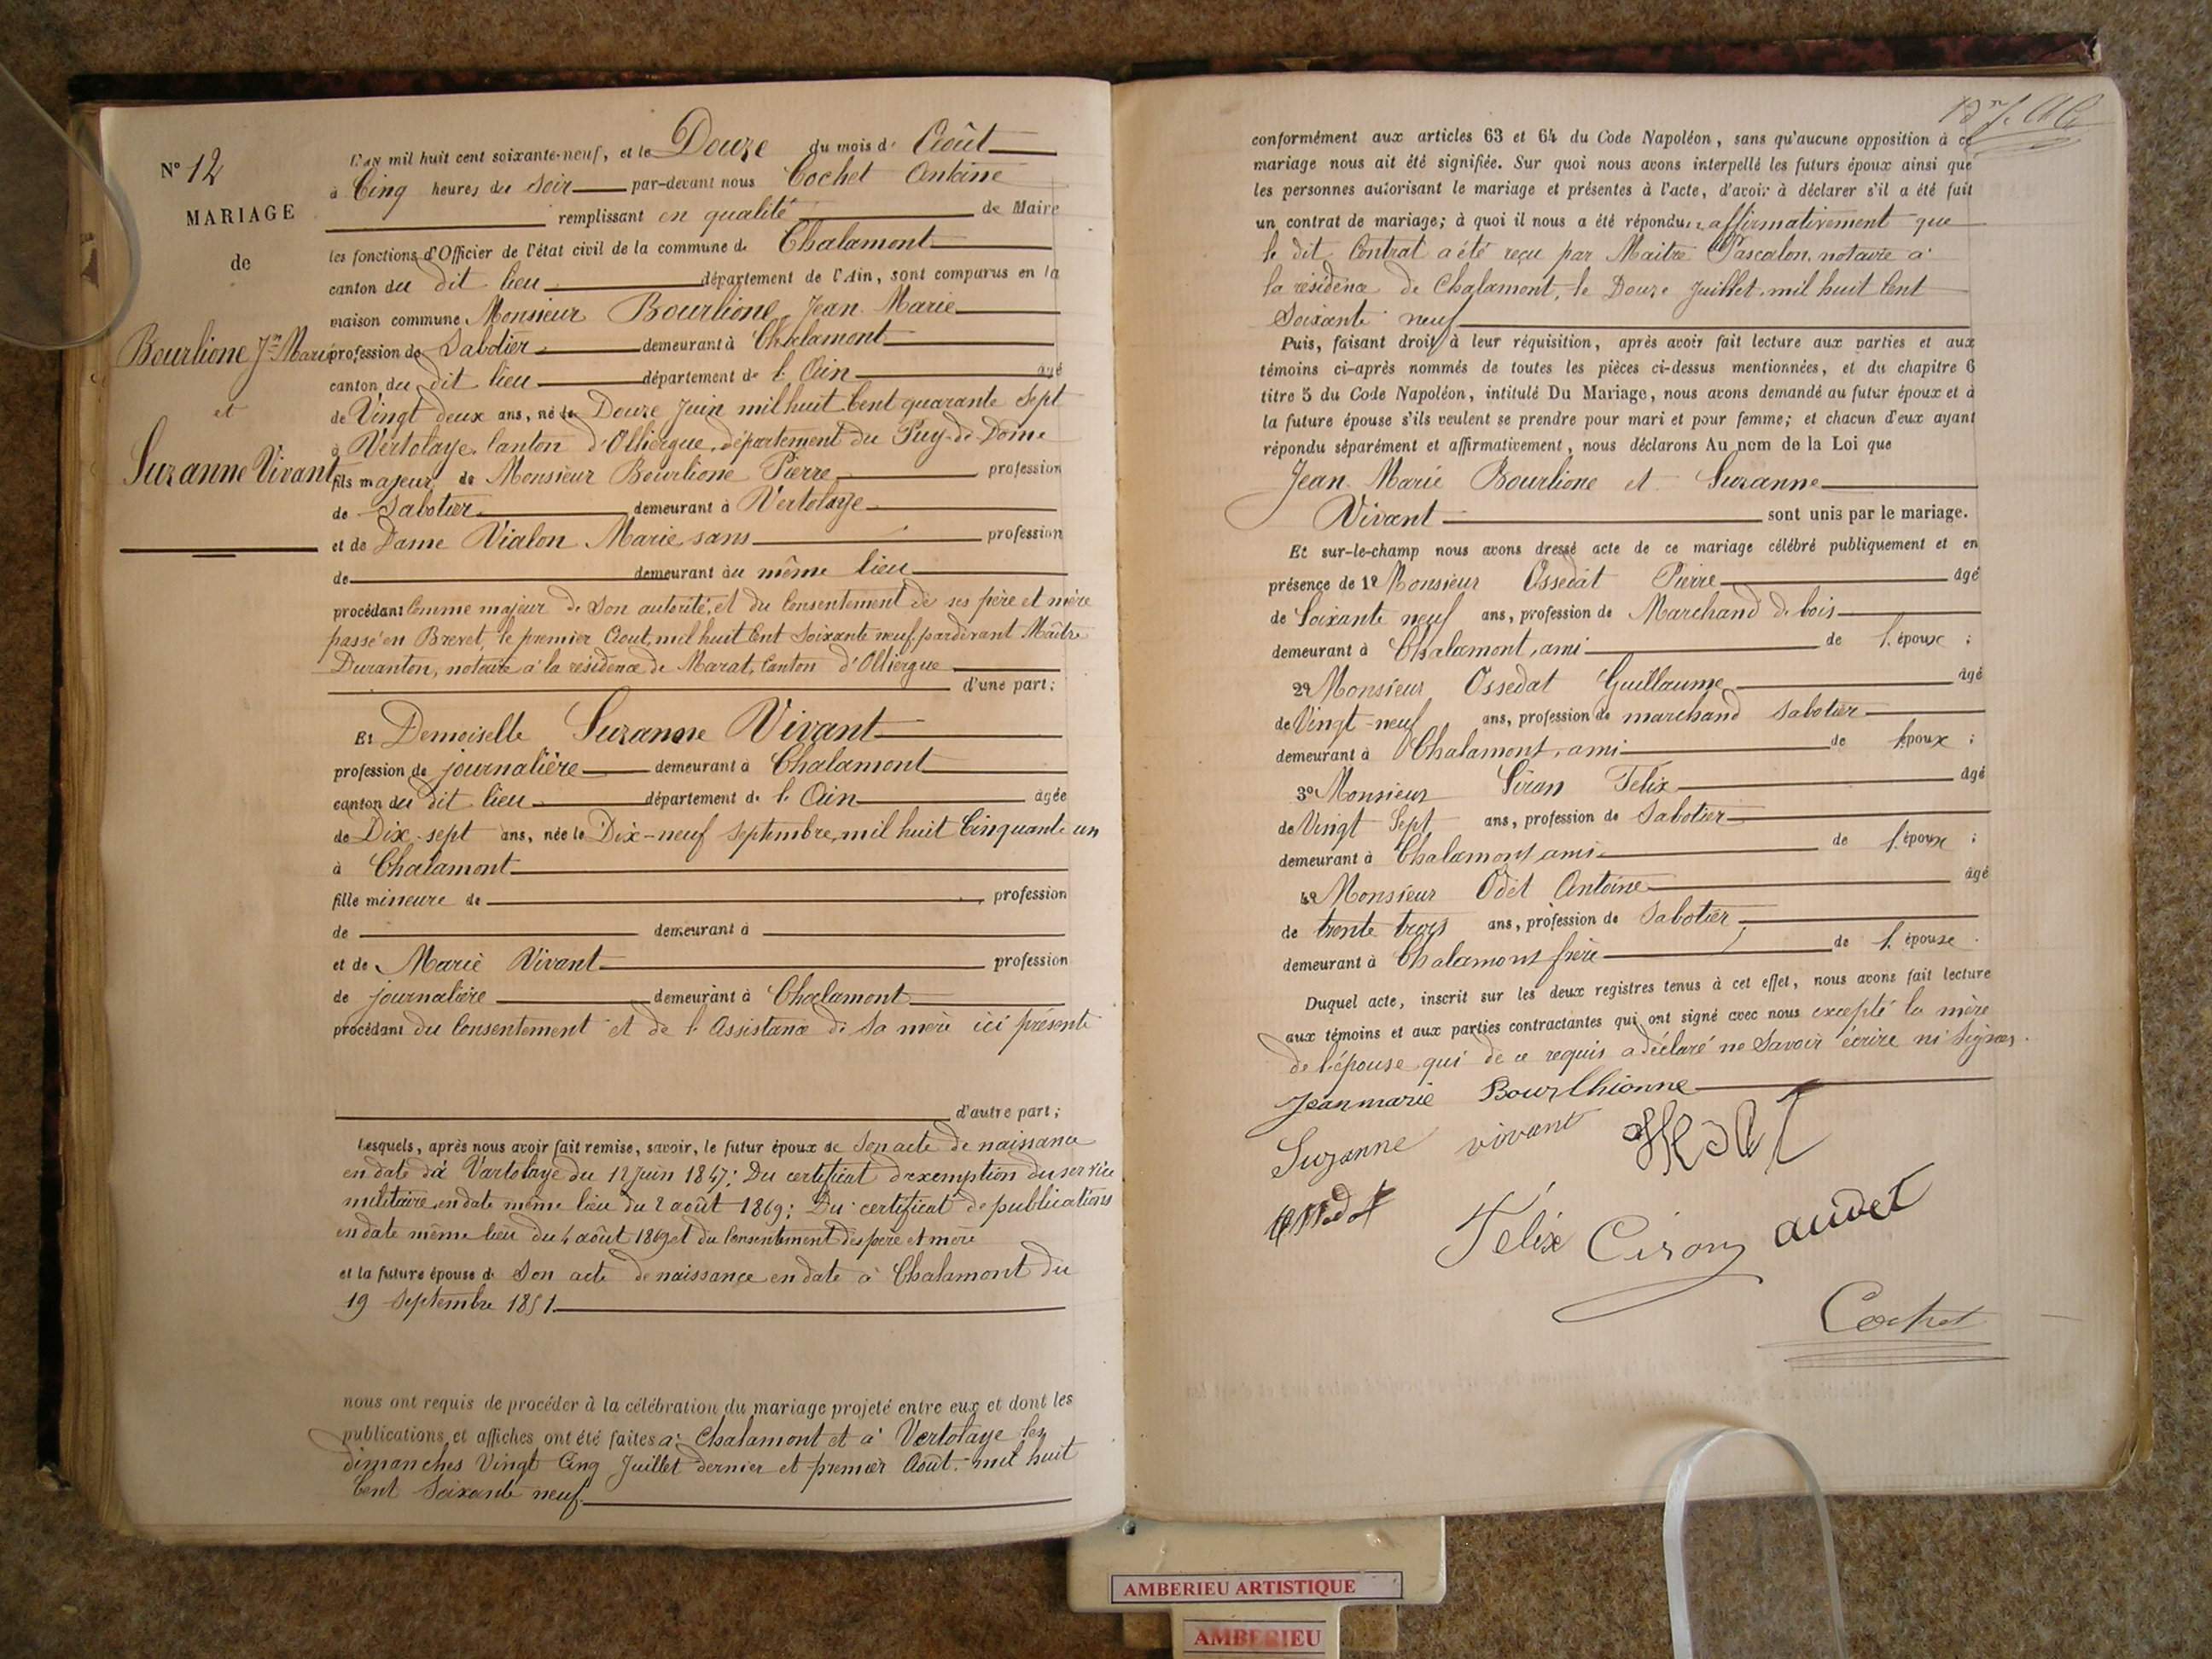 N° 12
MARIAGE
de
Bourlione Jn Marie
et
Suzanne Vivant
L'an mil huit cent soixante-neuf, et le Douze du mois d' Août
à Cinq heures du Soir par-devant nous Cochet Antoine
remplissant en qualité de Maire
les fonctions d'Officier de l'état civil de la commune de Chalamont
canton du dit lieu département de l'Ain, sont comparus en la
maison commune Monsieur Bourlione Jean Marie
profession de Sabotier demeurant à Chalamont
canton du dit lieu département de l'Ain âgé
de Vingt deux ans, né le Douze Juin mil huit Cent quarante Sept
à Vertolaye, Canton d'Olliergue, département du Puy-de-Dôme
fils majeur de Monsieur Bourlione Pierre profession
de Sabotier demeurant à Vertolaye
et de Dame Vialon Marie sans profession
de demeurant au même lieu
procédant Comme majeur de Son autorité, et du Consentement de ses père et mère
passé en Brevet, le premier Aout, mil huit Cent Soixante neuf, pardevant Maître
Duranton, notaire à la résidence de Marat, Canton d'Olliergue
d'une part;
Et Demoiselle Suzanne Vivant
profession de journalière demeurant à Chalamont
canton du dit lieu département de l'Ain âgée
de Dix-sept ans, née le Dix-neuf Septembre, mil huit Cinquante un
à Chalamont
fille mineure de profession
de demeurant à
et de Marie Vivant profession
de journalière demeurant à Chalamont
procédant du Consentement et de l'Assistance de Sa mère ici présente
d'autre part;
Lesquels, après nous avoir fait remise, savoir, le futur époux de Son acte de naissance
en date dà Vartolaye du 12 Juin 1847; Du certificat d'exemption du service
militaire en date même lieu du 2 août 1869; Du certificat de publications
en date même lieu du 4 août 1869 et du Consentement des père et mère
et la future épouse de Son acte de naissance en date à Chalamont du
19 Septembre 1851.
nous ont requis de procéder à la célébration du mariage projeté entre eux et dont les
publications et affiches ont été faites à Chalamont et à Vertolaye les
dimanches Vingt Cinq Juillet dernier et premier Août mil huit
Cent Soixante neuf.
conformément aux articles 63 et 64 du Code Napoléon, sans qu'aucune opposition à ce
mariage nous ait été signifiée. Sur quoi nous avons interpellé les futurs époux ainsi que
les personnes autorisant le mariage et présentes à l'acte, d'avoir à déclarer s'il a été fait
un contrat de mariage; à quoi il nous a été répondu affirmativement que
le dit Contrat a été reçu par Maitre Pascalon, notaire à
la résidence de Chalamont, le Douze Juillet mil huit Cent
Soixante neuf
Puis, faisant droit à leur réquisition, après avoir fait lecture aux parties et aux
témoins ci-après nommés de toutes les pièces ci-dessus mentionnées, et du chapitre 6
titre 5 du Code Napoléon, intitulé Du Mariage, nous avons demandé au futur époux et à
la future épouse s'ils veulent se prendre pour mari et pour femme; et chacun d'eux ayant
répondu séparément et affirmativement, nous déclarons Au nom de la Loi que
Jean Marie Bourlione et Suzanne
Vivant sont unis par le mariage.
Et sur-le-champ nous avons dressé acte de ce mariage célébré publiquement et en
présence de 1º Monsieur Ossedat Pierre âgé
de Soixante neuf ans, profession de Marchand de bois
demeurant à Chalamont, ami de l'époux;
2º Monsieur Ossedat Guillaume âgé
de Vingt-neuf ans, profession de marchand Sabotier
demeurant à Chalamont, ami de l'époux;
3º Monsieur Siran Félix âgé
de Vingt Sept ans, profession de Sabotier
demeurant à Chalamont ami de l'époux;
4º Monsieur Odet Antoine âgé
de trente trois ans, profession de Sabotier
demeurant à Chalamont frère de l'épouse.
Duquel acte, inscrit sur les deux registres tenus à cet effet, nous avons fait lecture
aux témoins et aux parties contractantes qui ont signé avec nous excepté la mère
de l'épouse qui de ce requis a déclaré ne Savoir écrire ni Signer.
Jeanmarie Bourlhionne
Suzanne vivant
Félix Ciron audet
Cochet
AMBERIEU ARTISTIQUE
AMBERIEU